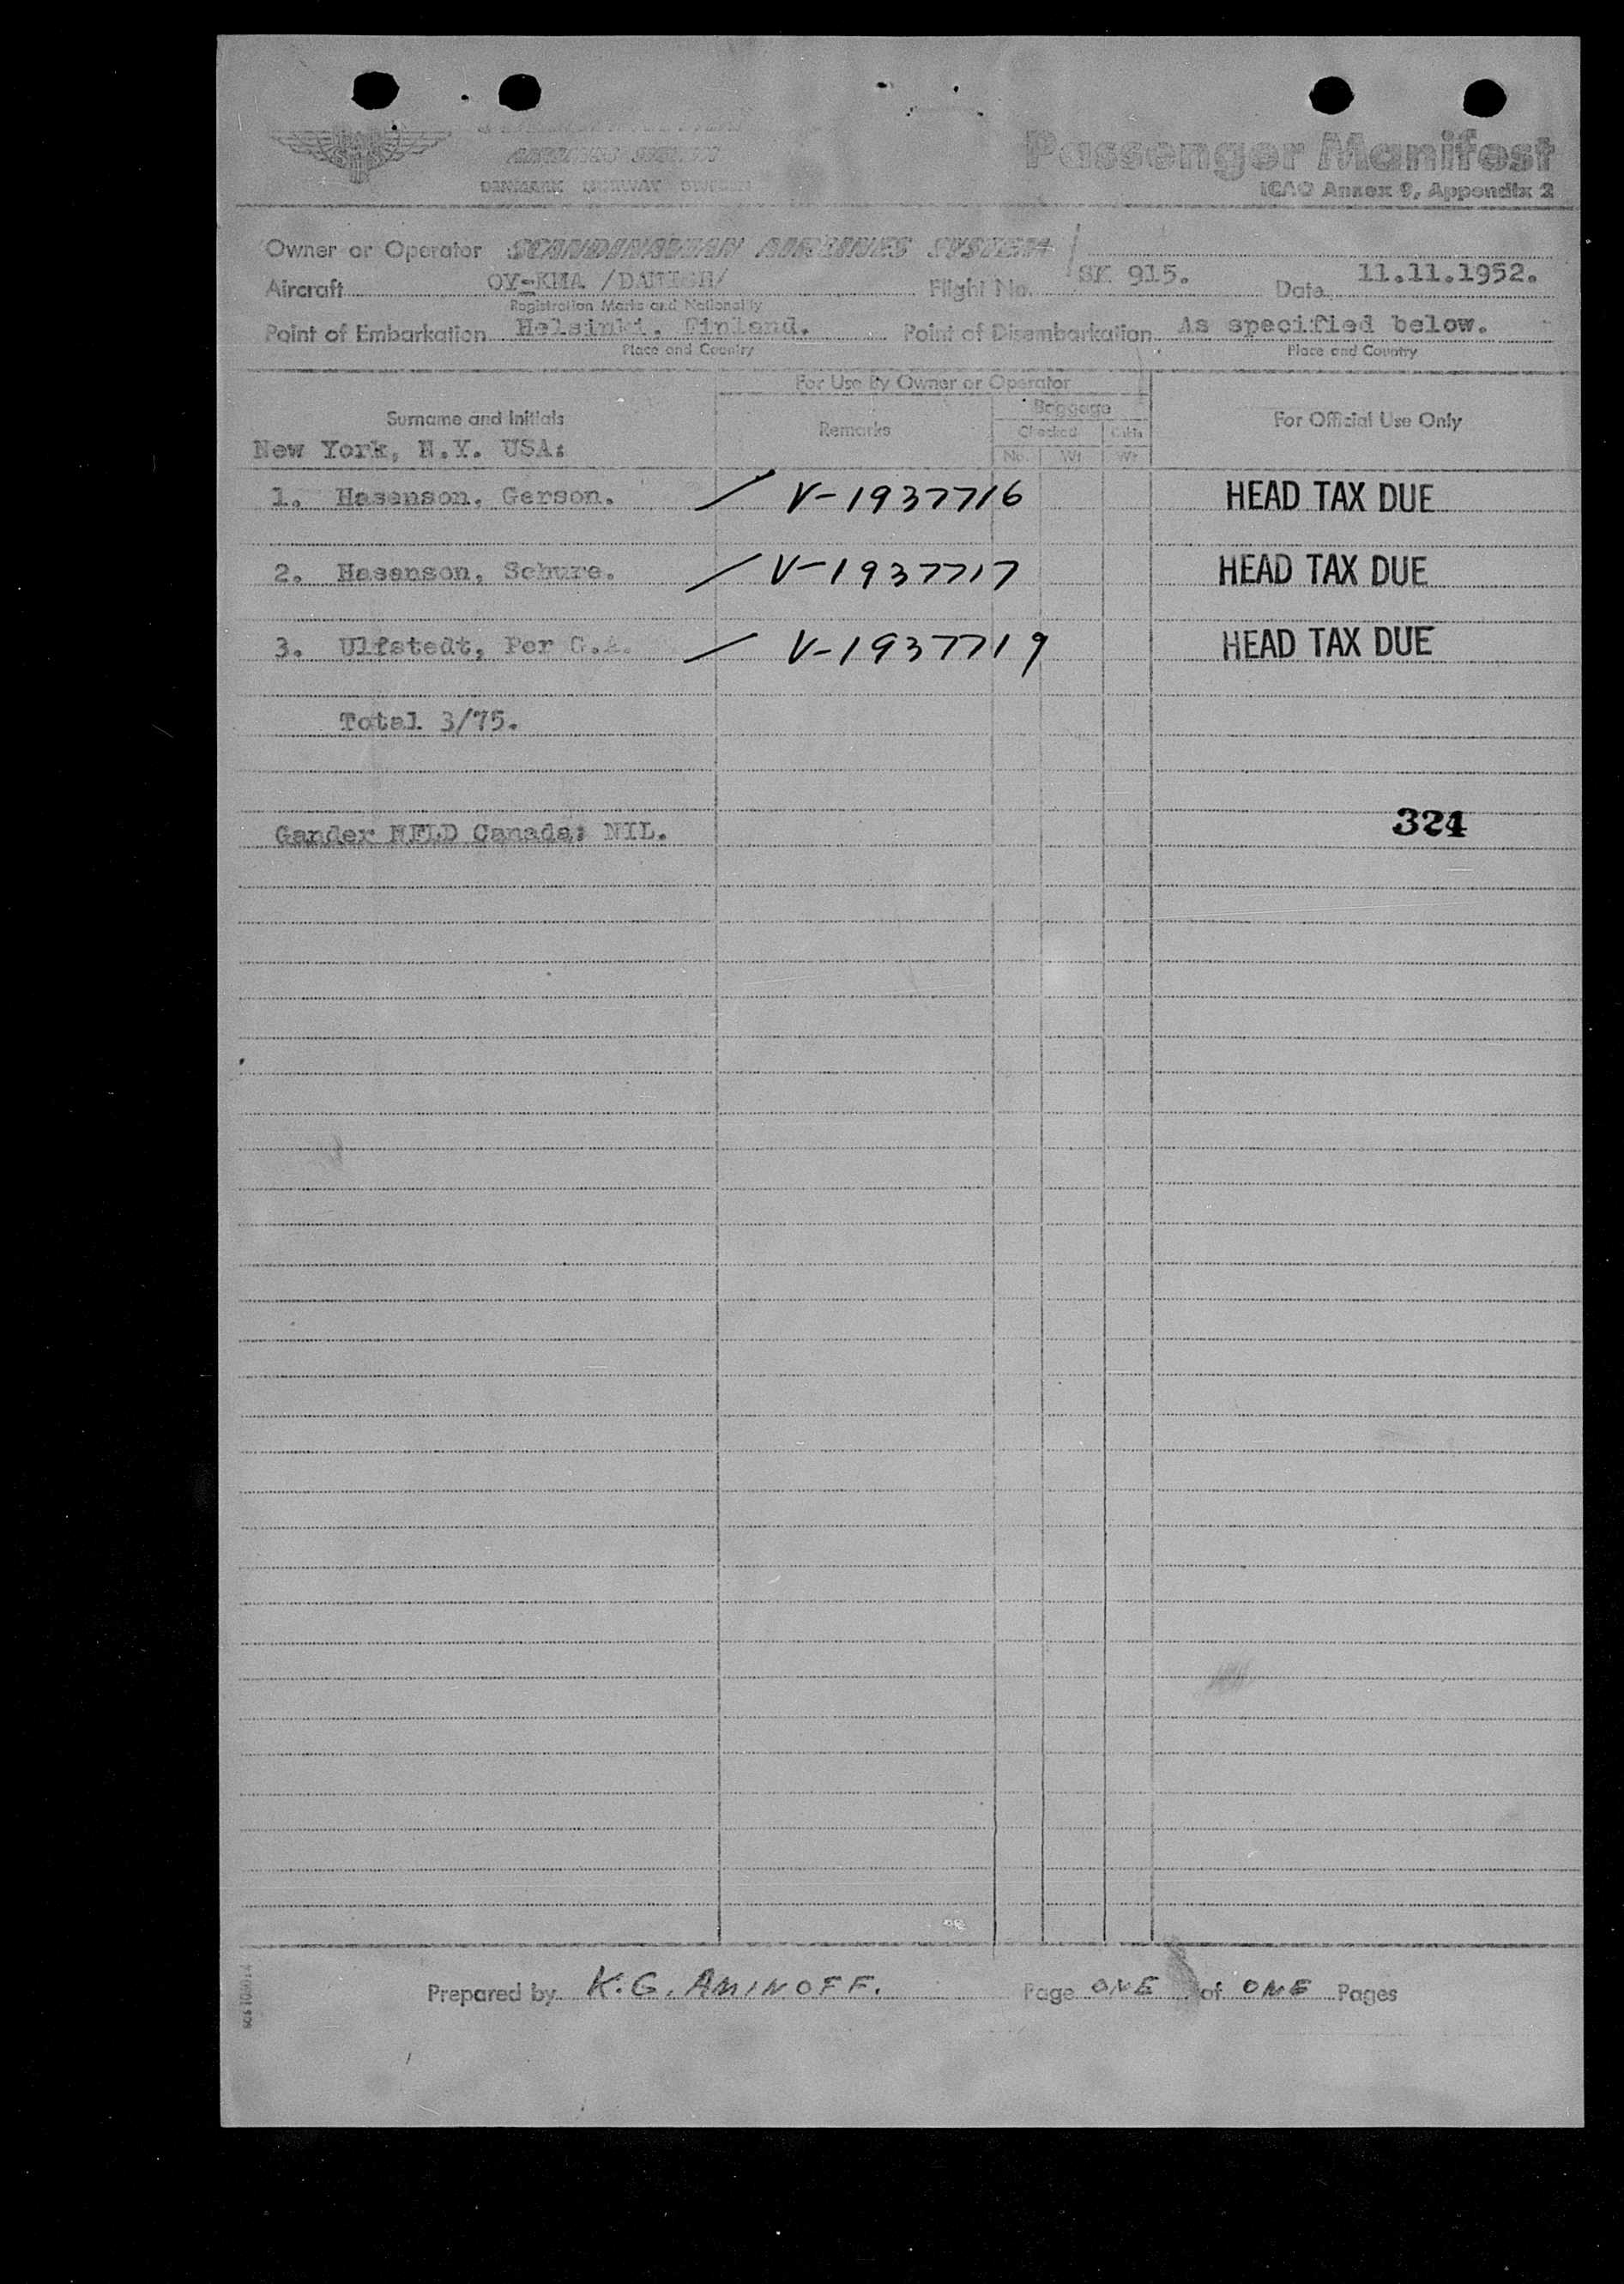 SAS
AIRLINES SYSTEM
DENMARK NORWAY SWEDEN
Passenger Manifest
ICAO Annex 9, Appendix 2
Owner or Operator SCANDINAVIAN AIRLINES SYSTEM
Aircraft OY-KMA /DANISH/ Flight No. SK 915. Date 11.11.1952.
Registration Marks and Nationality
Point of Embarkation Helsinki, Finland. Point of Disembarkation As specified below.
Place and Country Place and Country
For Use By Owner or Operator
Surname and Initials Remarks Baggage For Official Use Only
Checked Cabin
No. Wt Wt
New York, N.Y. USA:
1. Hasenson, Gerson. / V-1937716 HEAD TAX DUE
2. Hasenson, Schure. / V-1937717 HEAD TAX DUE
3. Ulfstedt, Per G.A. / V-1937719 HEAD TAX DUE
Total 3/75.
324
Gander NFLD Canada: NIL.
Prepared by K.G. AMINOFF. Page ONE of ONE Pages